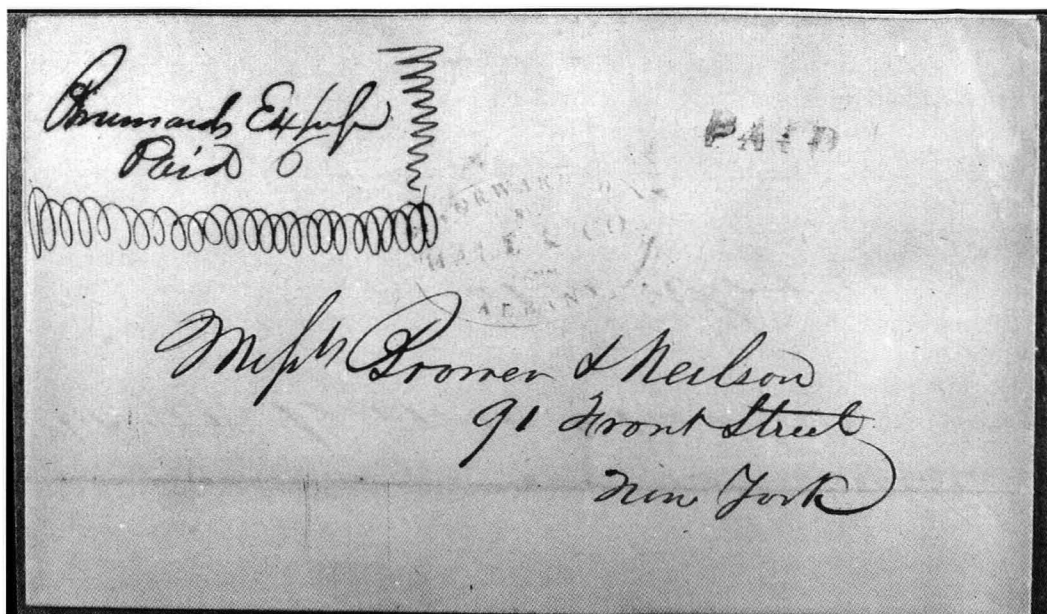 Brumards Express
Paid 6
PAID
FORWARD
HALE & CO
FROM
ALBANY
Messrs Brower & Neilson
91 Front Street
New York